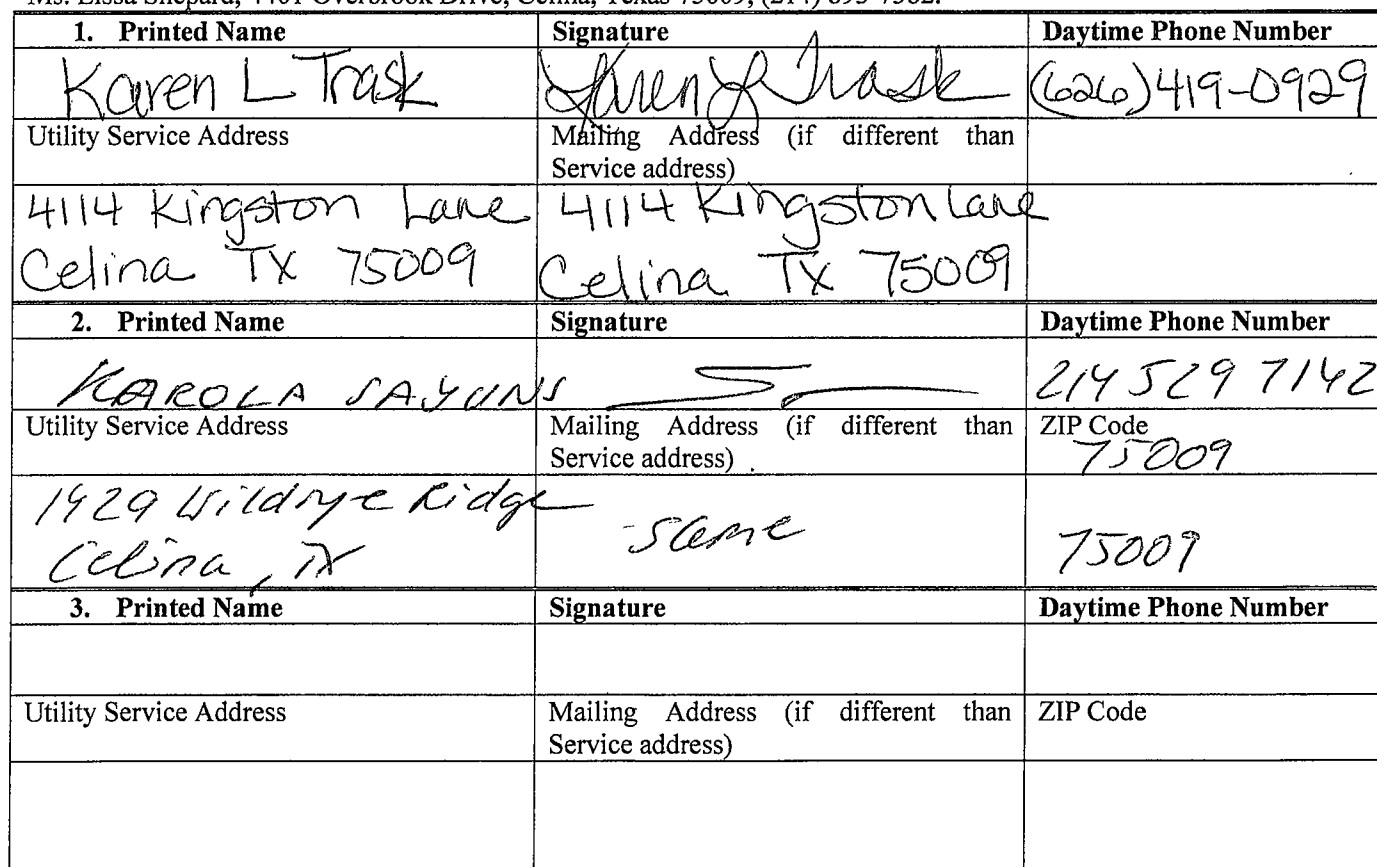 1. Printed Name Signature Daytime Phone Number
Karen L Trask Karen L Trask (626)419-0929
Utility Service Address Mailing Address (if different than
Service address)
4114 Kingston Lane 4114 Kingston Lane
Celina TX 75009 Celina TX 75009
2. Printed Name Signature Daytime Phone Number
KAROLA 214 529 7142
Utility Service Address Mailing Address (if different than ZIP Code
Service address) 75009
1929 Wildrye Ridge same 75009
Celina, TX
3. Printed Name Signature Daytime Phone Number
Utility Service Address Mailing Address (if different than ZIP Code
Service address)